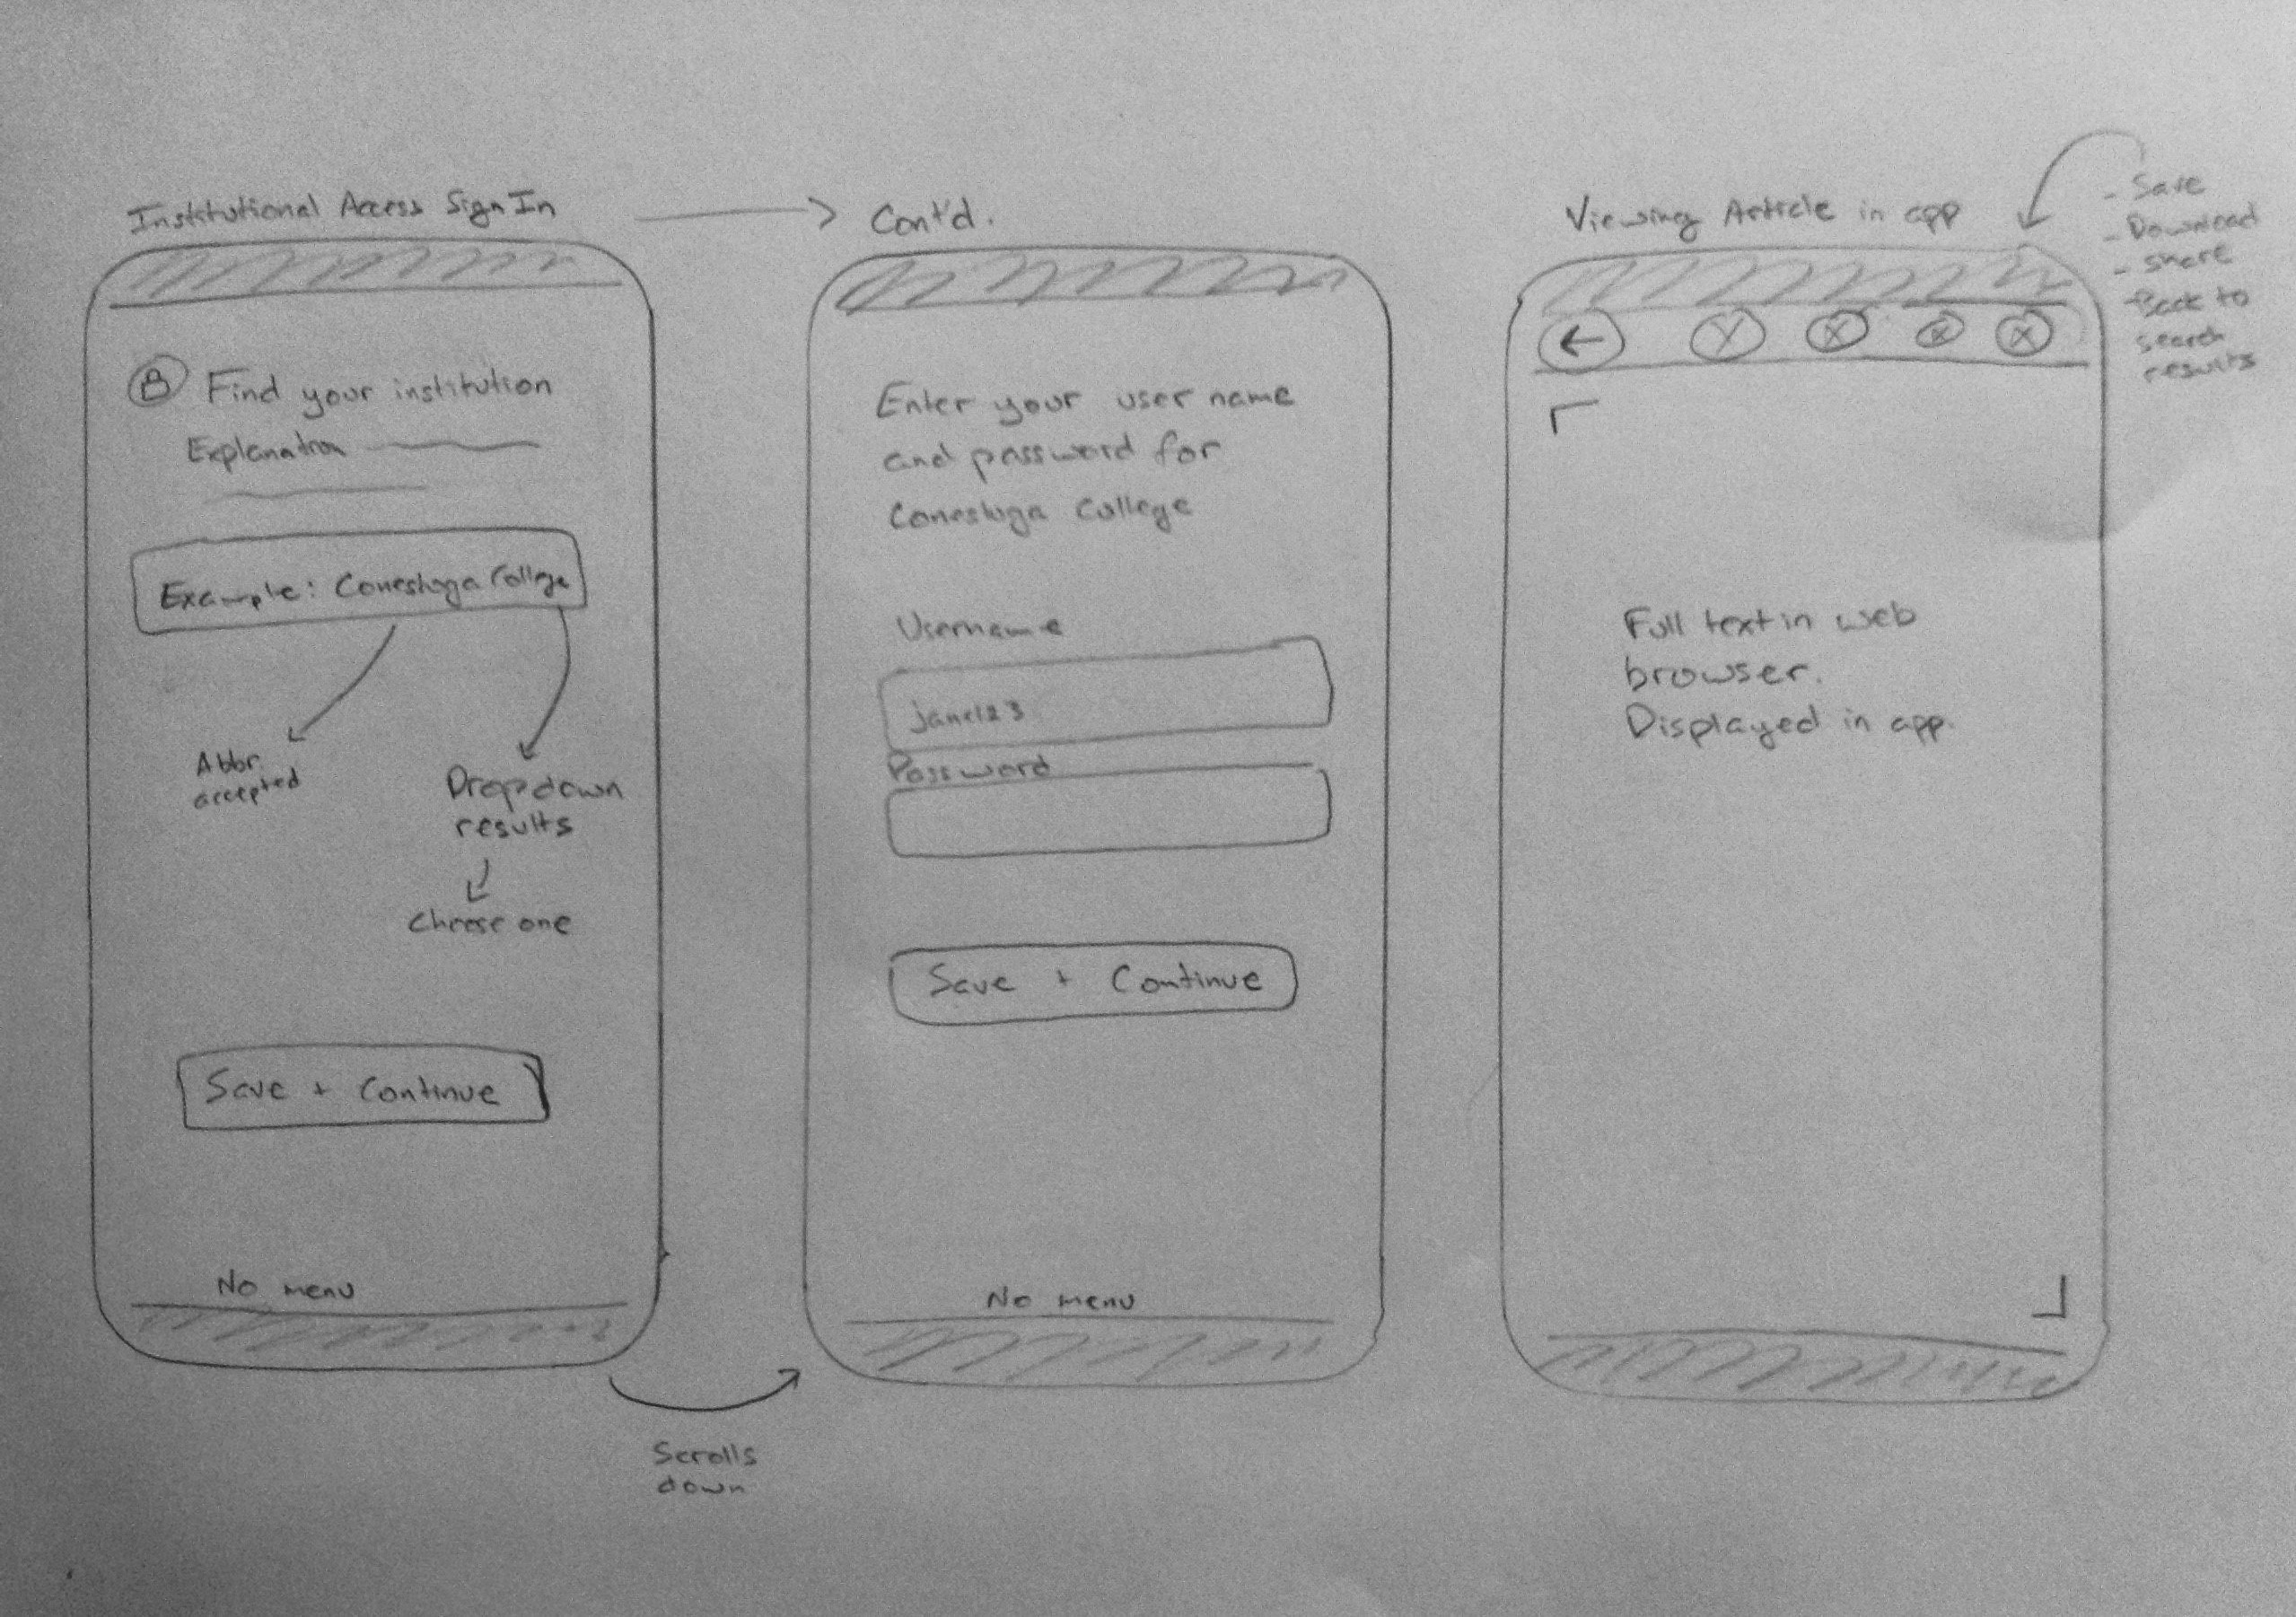 Institutional Access Sign In
Find your institution
Explanation
Example: Conestoga College
Abbr.
accepted
Dropdown
results
Choose one
Save + Continue
No menu
Scrolls
down
Cont'd.
Enter your user name
and password for
Conestoga College
Username
jane123
Password
Save + Continue
No menu
Viewing Article in app
- Save
- Download
- Share
- Back to
search
results
Full text in web
browser.
Displayed in app.